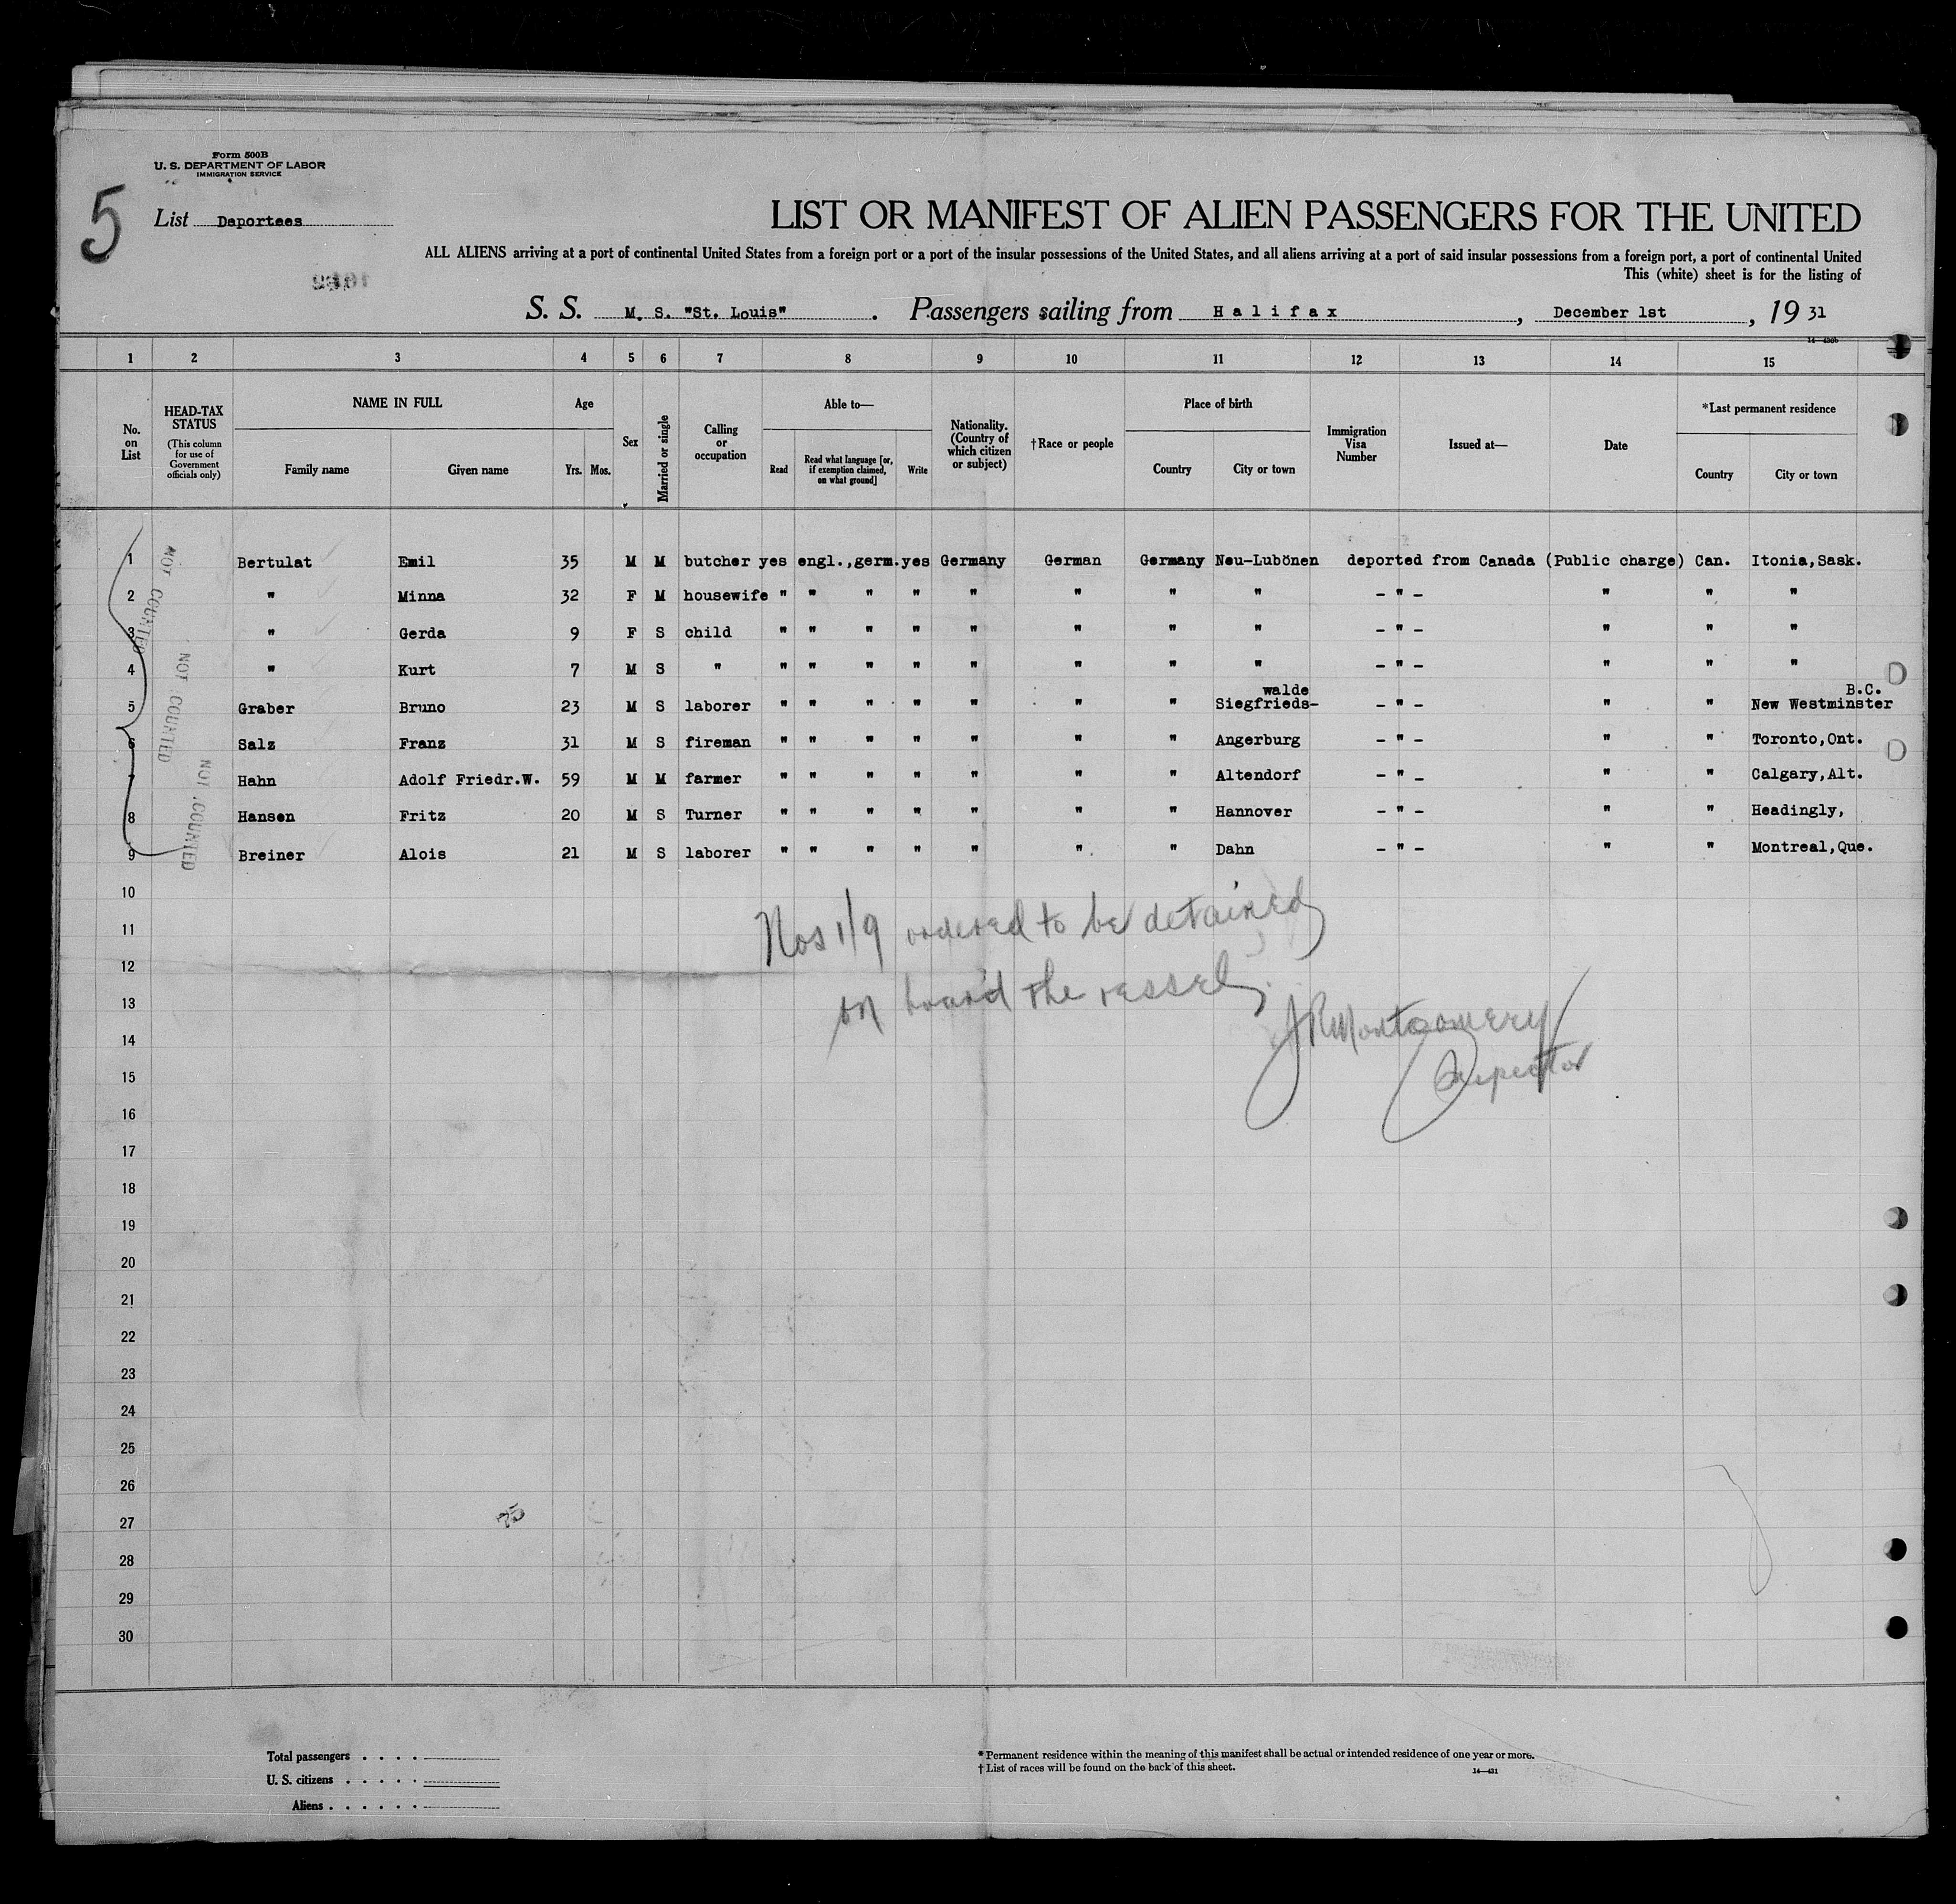 Form 500B
U. S. DEPARTMENT OF LABOR
IMMIGRATION SERVICE
5
List Deportees
LIST OR MANIFEST OF ALIEN PASSENGERS FOR THE UNITED
ALL ALIENS arriving at a port of continental United States from a foreign port or a port of the insular possessions of the United States, and all aliens arriving at a port of said insular possessions from a foreign port, a port of continental United
This (white) sheet is for the listing of
S. S. M. S. "St. Louis" . Passengers sailing from Halifax , December 1st , 19 31
1 2 3 4 5 6 7 8 9 10 11 12 13 14 15
No. on List
HEAD-TAX STATUS (This column for use of Government officials only)
NAME IN FULL
Family name Given name
Age
Yrs. Mos.
Sex
Married or single
Calling or occupation
Able to—
Read Read what language [or, if exemption claimed, on what ground] Write
Nationality. (Country of which citizen or subject)
†Race or people
Place of birth
Country City or town
Immigration Visa Number
Issued at—
Date
*Last permanent residence
Country City or town
1 Bertulat Emil 35 M M butcher yes engl.,germ. yes Germany German Germany Neu-Lubönen deported from Canada (Public charge) Can. Itonia,Sask.
2 " Minna 32 F M housewife " " " " " " " " - " - " " "
3 " Gerda 9 F S child " " " " " " " " - " - " " "
4 " Kurt 7 M S " " " " " " " " " - " - " " "
walde B.C.
5 Graber Bruno 23 M S laborer " " " " " " " Siegfrieds- - " - " " New Westminster
6 Salz Franz 31 M S fireman " " " " " " " Angerburg - " - " " Toronto,Ont.
7 Hahn Adolf Friedr.W. 59 M M farmer " " " " " " " Altendorf - " - " " Calgary,Alt.
8 Hansen Fritz 20 M S Turner " " " " " " " Hannover - " - " " Headingly,
9 Breiner Alois 21 M S laborer " " " " " " " Dahn - " - " " Montreal,Que.
NOT COUNTED
NOT COUNTED
NOT COUNTED
10
11
12
13
14
15
16
17
18
19
20
21
22
23
24
25
26
27
28
29
30
Nos 1/9 ordered to be detained
on board the vessel
JR Montgomery
Inspector
75
Total passengers . . . .
U. S. citizens . . . . .
Aliens . . . . . .
* Permanent residence within the meaning of this manifest shall be actual or intended residence of one year or more.
† List of races will be found on the back of this sheet.
14—431